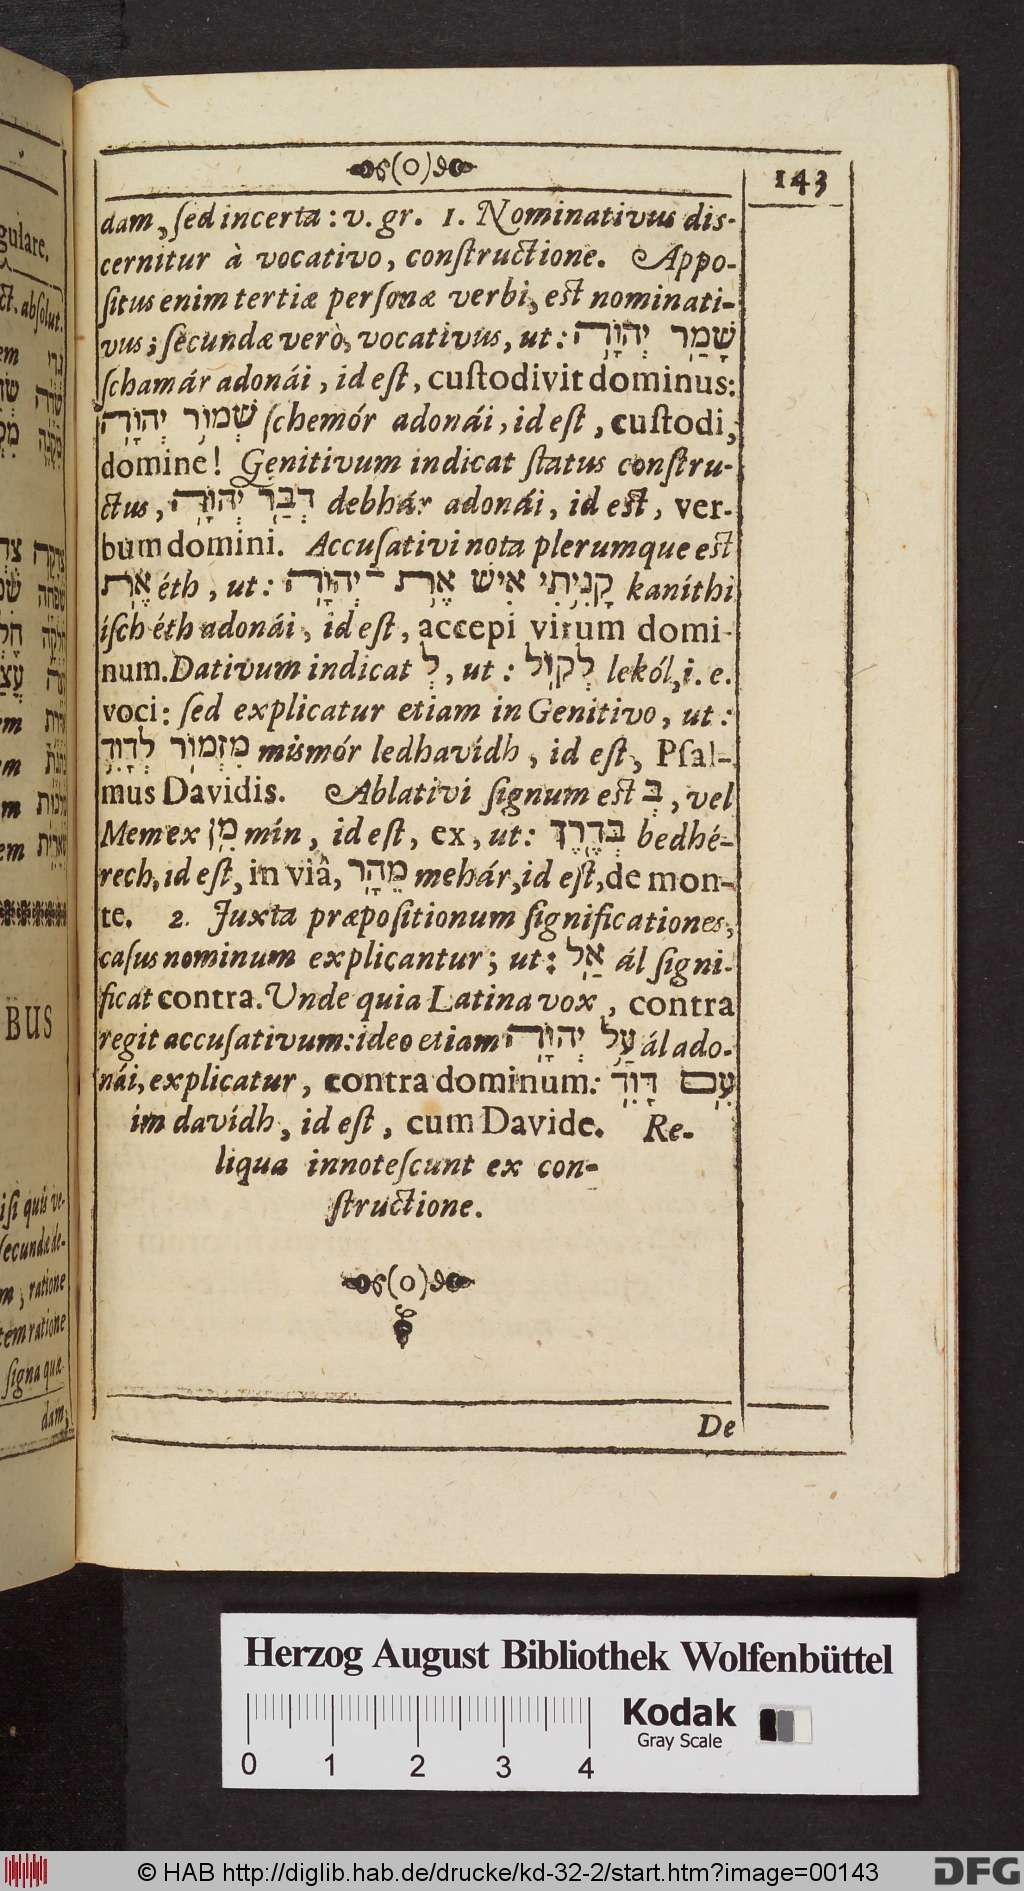 (o)
143
dam, ſed incerta: v. gr. 1. Nominativus diſ-
cernitur à vocativo, conſtructione. Appo-
ſitus enim tertiæ perſonæ verbi, eſt nominati-
vus; ſecundæ verò, vocativus, ut: שָׁמַר יְהוָֹה
ſchamár adonái, id eſt, cuſtodivit dominus:
שְׁמוֹר יְהוָֹה ſchemór adonái, id eſt, cuſtodi,
domine! Genitivum indicat ſtatus conſtru-
ctus, דְּבַר יְהוָֹה debhár adonái, id eſt, ver-
bum domini. Accuſativi nota plerumque eſt
אֶת éth, ut: קָנִיתִי אִישׁ אֶת־יְהוָֹה kaníthi
iſch éth adonái, id eſt, accepi virum domi-
num. Dativum indicat לְ, ut: לְקוֹל lekól, i. e.
voci: ſed explicatur etiam in Genitivo, ut:
מִזְמוֹר לְדָוִד mismór ledhavídh, id eſt, Pſal-
mus Davidis. Ablativi ſignum eſt בְּ, vel
Mem ex מִן mín, id eſt, ex, ut: בְּדֶרֶךְ bedhé-
rech, id eſt, in viâ, מֵהָר mehár, id eſt, de mon-
te. 2. Juxta præpoſitionum ſignificationes,
caſus nominum explicantur; ut: אַל ál ſigni-
ficat contra. Unde quia Latina vox, contra
regit accuſativum: ideo etiam עַל יְהוָֹה ál ado-
nái, explicatur, contra dominum: עִם דָּוִד
im davídh, id eſt, cum Davide. Re-
liqua innoteſcunt ex con-
ſtructione.
(o)
De
gulare.
ct. abſolut.
em
em
em
em
BUS
iſi quis ve-
ſecundæ de-
m, ratione
tem ratione
ſigna quæ-
dam,
Herzog August Bibliothek Wolfenbüttel
0 1 2 3 4
Kodak
Gray Scale
© HAB http://diglib.hab.de/drucke/kd-32-2/start.htm?image=00143
DFG